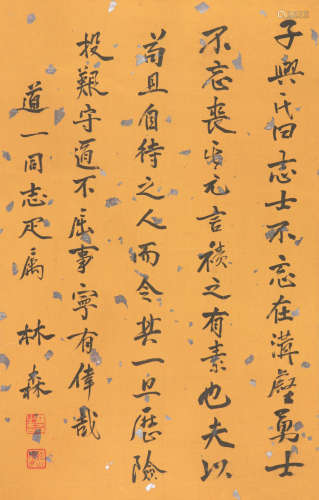 子輿氏曰志士不忘在溝壑勇士
不忘喪其元言積之有素也夫以
苟且自待之人而令其一旦歷險
投艱守道不屈事寧有偉哉
道一同志疋属
林森